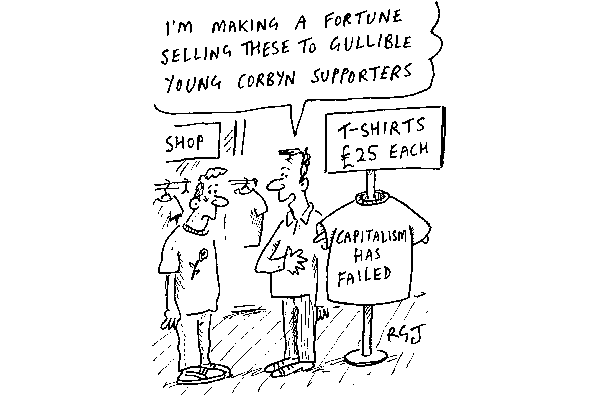 I'M MAKING A FORTUNE
SELLING THESE TO GULLIBLE
YOUNG CORBYN SUPPORTERS
SHOP
T-SHIRTS
£25 EACH
CAPITALISM
HAS
FAILED
RGJ